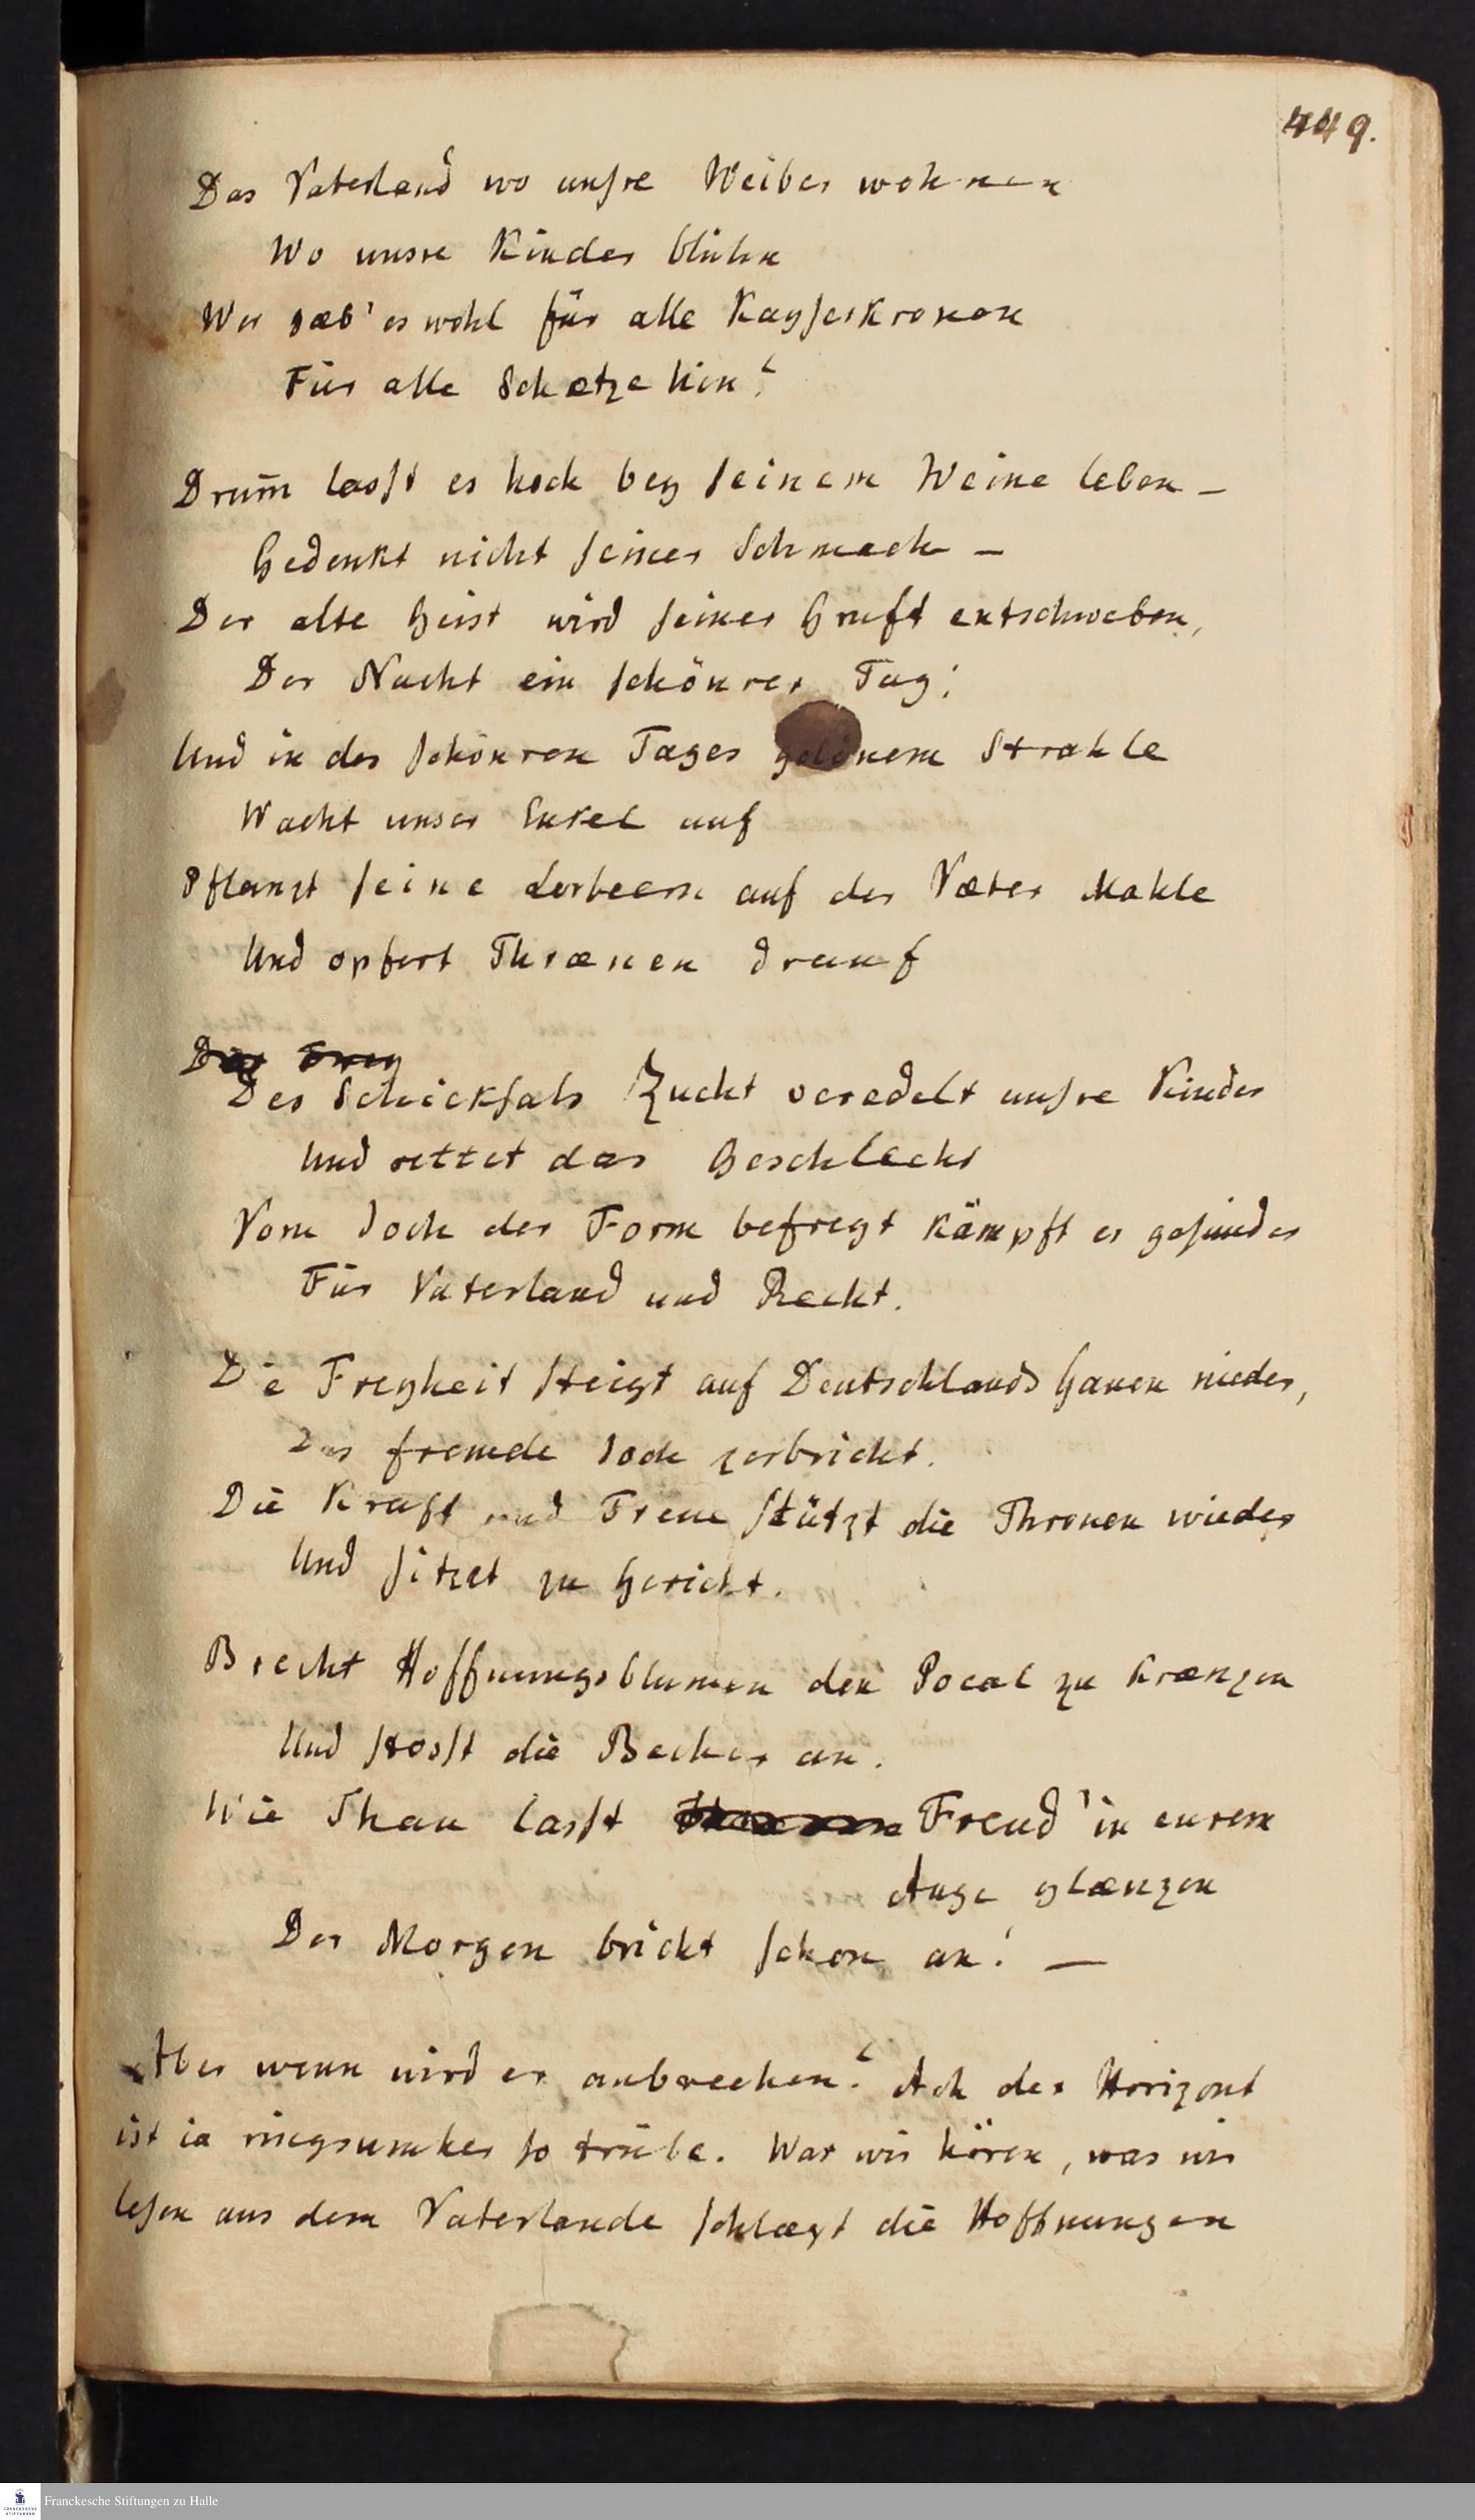 449.
Das Vaterland wo unsre Weiber wohnen
Wo unsre Kinder blühn
Wer gæb' es wohl für alle Kayserkronen
Für alle Schætze hin?
Drum̄ lasst es hoch bey seinem Weine leben –
Gedenkt nicht seiner Schmach –
Der alte Geist wird seiner Gruft entschweben,
Der Nacht ein schönrer Tag;
Und in des schönren Tages goldnem Strahle
Wacht unser Enkel auf
Pflanzt seine Lorbeern auf der Væter Mahle
Und opfert Thrænen drauf
Des Schicksals Zucht veredelt unsre Kinder
Und rettet das Geschlecht
Vom Joch der Form befreyt kämpft es gesunder
Für Vaterland und Recht.
Die Freyheit steigt auf Deutschlands Gauen nieder,
Das fremde Joch zerbricht.
Die Kraft und Treue stützt die Thronen wieder
Und sitzet zu Gericht.
Brecht Hoffnungsblumen den Pocal zu krænzen
Und stosst die Becher an.
Wie Thau lasst Freud' in eurem
Auge glænzen
Der Morgen bricht schon an! —
Aber wenn wird er anbrechen? Ach der Horizont
ist ia ringsumher so trübe. Was wir hören, was wir
lesen aus dem Vaterlande schlægt die Hoffnungen
Franckesche Stiftungen zu Halle